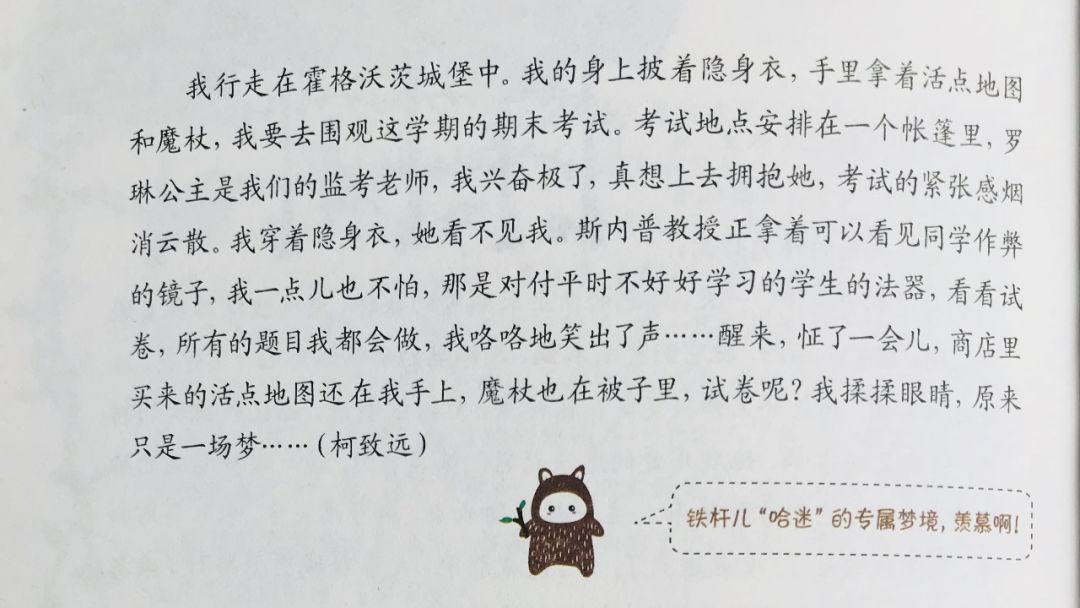 我行走在霍格沃茨城堡中。我的身上披着隐身衣，手里拿着活点地图
和魔杖，我要去围观这学期的期末考试。考试地点安排在一个帐篷里，罗
琳公主是我们的监考老师，我兴奋极了，真想上去拥抱她，考试的紧张感烟
消云散。我穿着隐身衣，她看不见我。斯内普教授正拿着可以看见同学作弊
的镜子，我一点儿也不怕，那是对付平时不好好学习的学生的法器，看看试
卷，所有的题目我都会做，我咯咯地笑出了声……醒来，怔了一会儿，商店里
买来的活点地图还在我手上，魔杖也在被子里，试卷呢？我揉揉眼睛，原来
只是一场梦……（柯致远）
铁杆儿“哈迷”的专属梦境，羡慕啊！